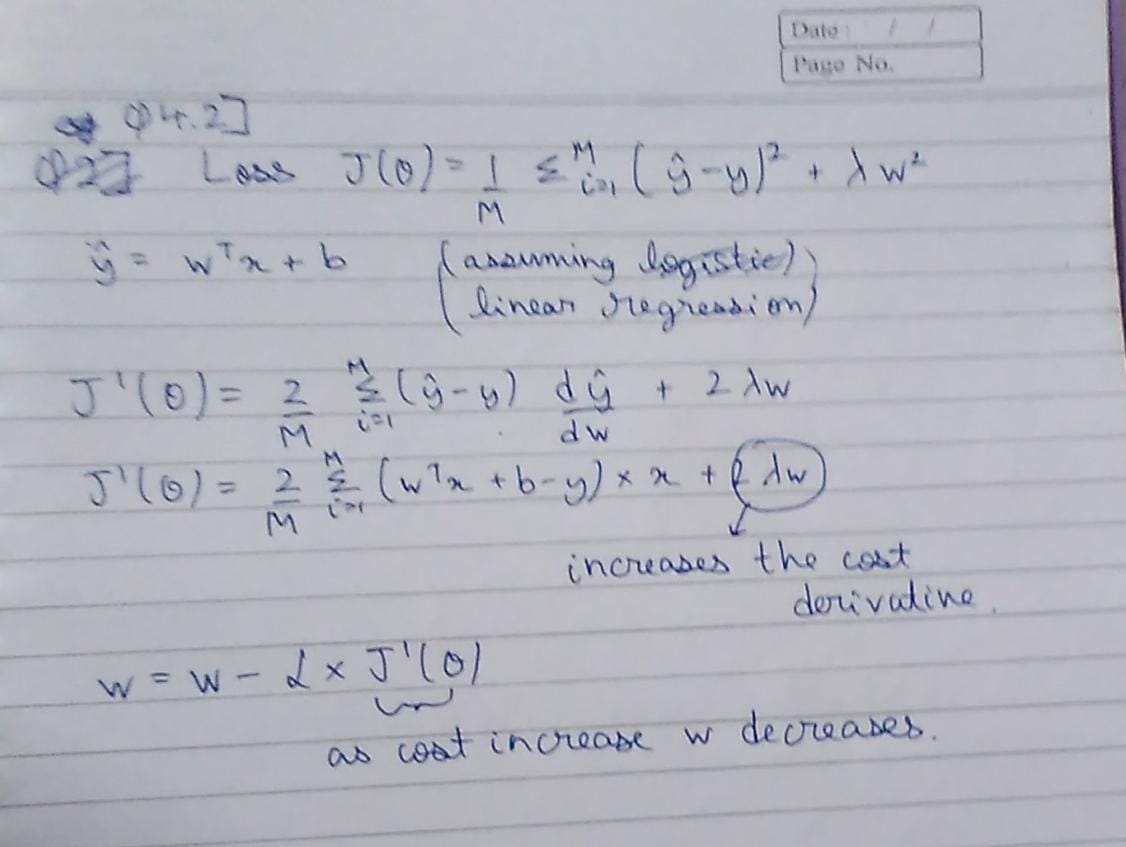 Date : / /
Page No.
Q4.2]
Q2] Loss J(θ) = 1/M Σ^M_{i=1} (ŷ-y)² + λw²
ŷ = wᵀx + b (assuming logistic)
(linear regression)
J'(θ) = 2/M Σ^M_{i=1} (ŷ-y) dŷ/dw + 2λw
J'(θ) = 2/M Σ^M_{i=1} (wᵀx + b-y) × x + 2λw
increases the cost
derivative.
w = w - α × J'(θ)
as cost increase w decreases.